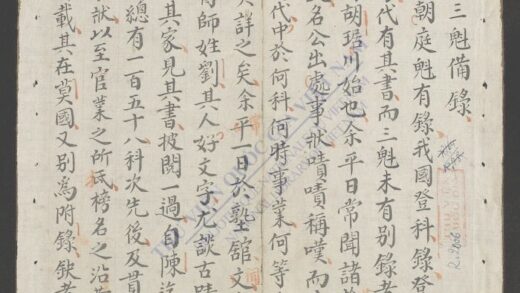 三魁備錄
朝庭魁有錄我國登科錄登
代有其書而三魁未有別錄者
胡琚川始也余平日常聞諸
名公出處事狀嘖嘖稱嘆而
代中於何科何時事業何等
詳之矣余平一日於塾舘文
師姓劉其人好文字尤談古
其家見其書披閱一過自陳
總有一百五十八科次先後及貫
狀以至官業之所民榜名之沿
載其在莫國又別為附錄缺者
R.2006